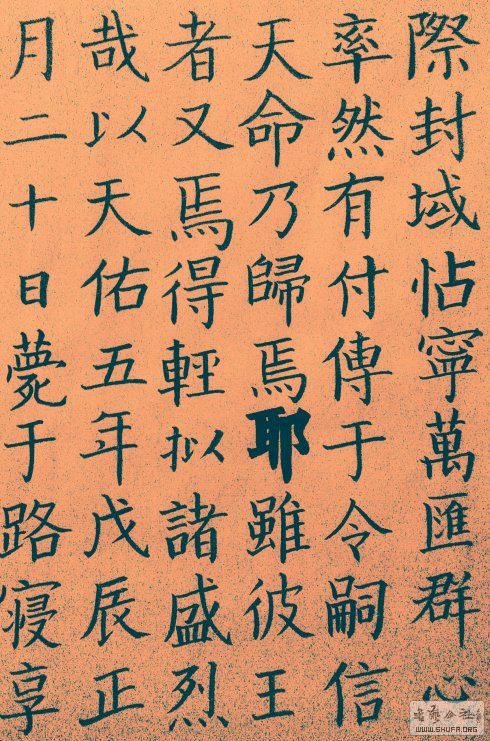 際封域怗寧萬匯群心
率然有付傳于令嗣信
天命乃歸焉耶雖彼王
者又焉得輕擬諸盛烈
哉以天佑五年戊辰正
月二十日薨于路寢享
WWW.SHUFA.ORG